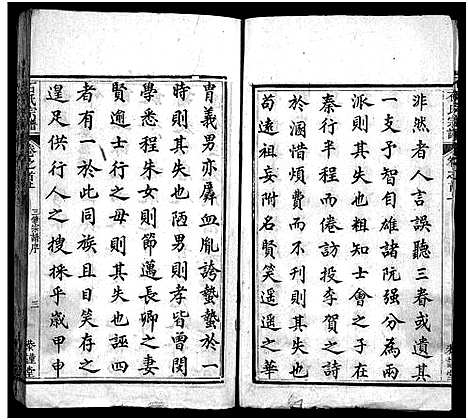 非然者人言誤聽三春或遺其
一支予智自雄諸阮强分為兩
派則其失也固知士會之子在
秦行半程而倦訪投李賀之詩
於溷惜煩而不刊則其失也
苟遠祖妄附名賢笑遥遥之華
胄義男亦孱血胤誇蟄蟄於一
時則其失也陋男則孝皆曾閔
學悉程朱女則節邁長卿之妻
賢逾士行之母則其失也誣四
者有一於此同族且笑存之不
遑足供行人之搜採乎歲甲申
石氏宗譜
卷之首上
三修宗譜序
三